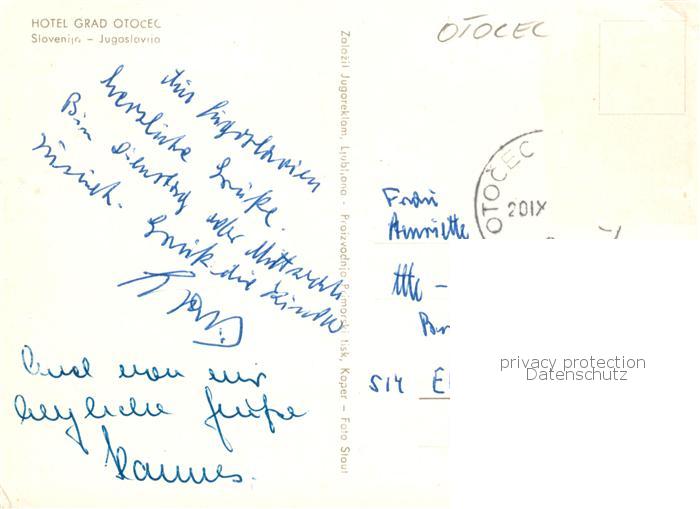 HOTEL GRAD OTOČEC
Slovenija – Jugoslavija
OTOCEC
Aus Jugoslavien
herzliche Grüße.
Bin Dienstag oder Mittwoch
zurück. Grüß die Kinder
Und von mir
herzliche Grüße
Hannes.
Založil Jugoreklam, Ljubljana - Proizvodnja Primorski tisk, Koper – Foto Staut
OTOČEC
20IX
Frau
Henriette
514 E
privacy protection
Datenschutz